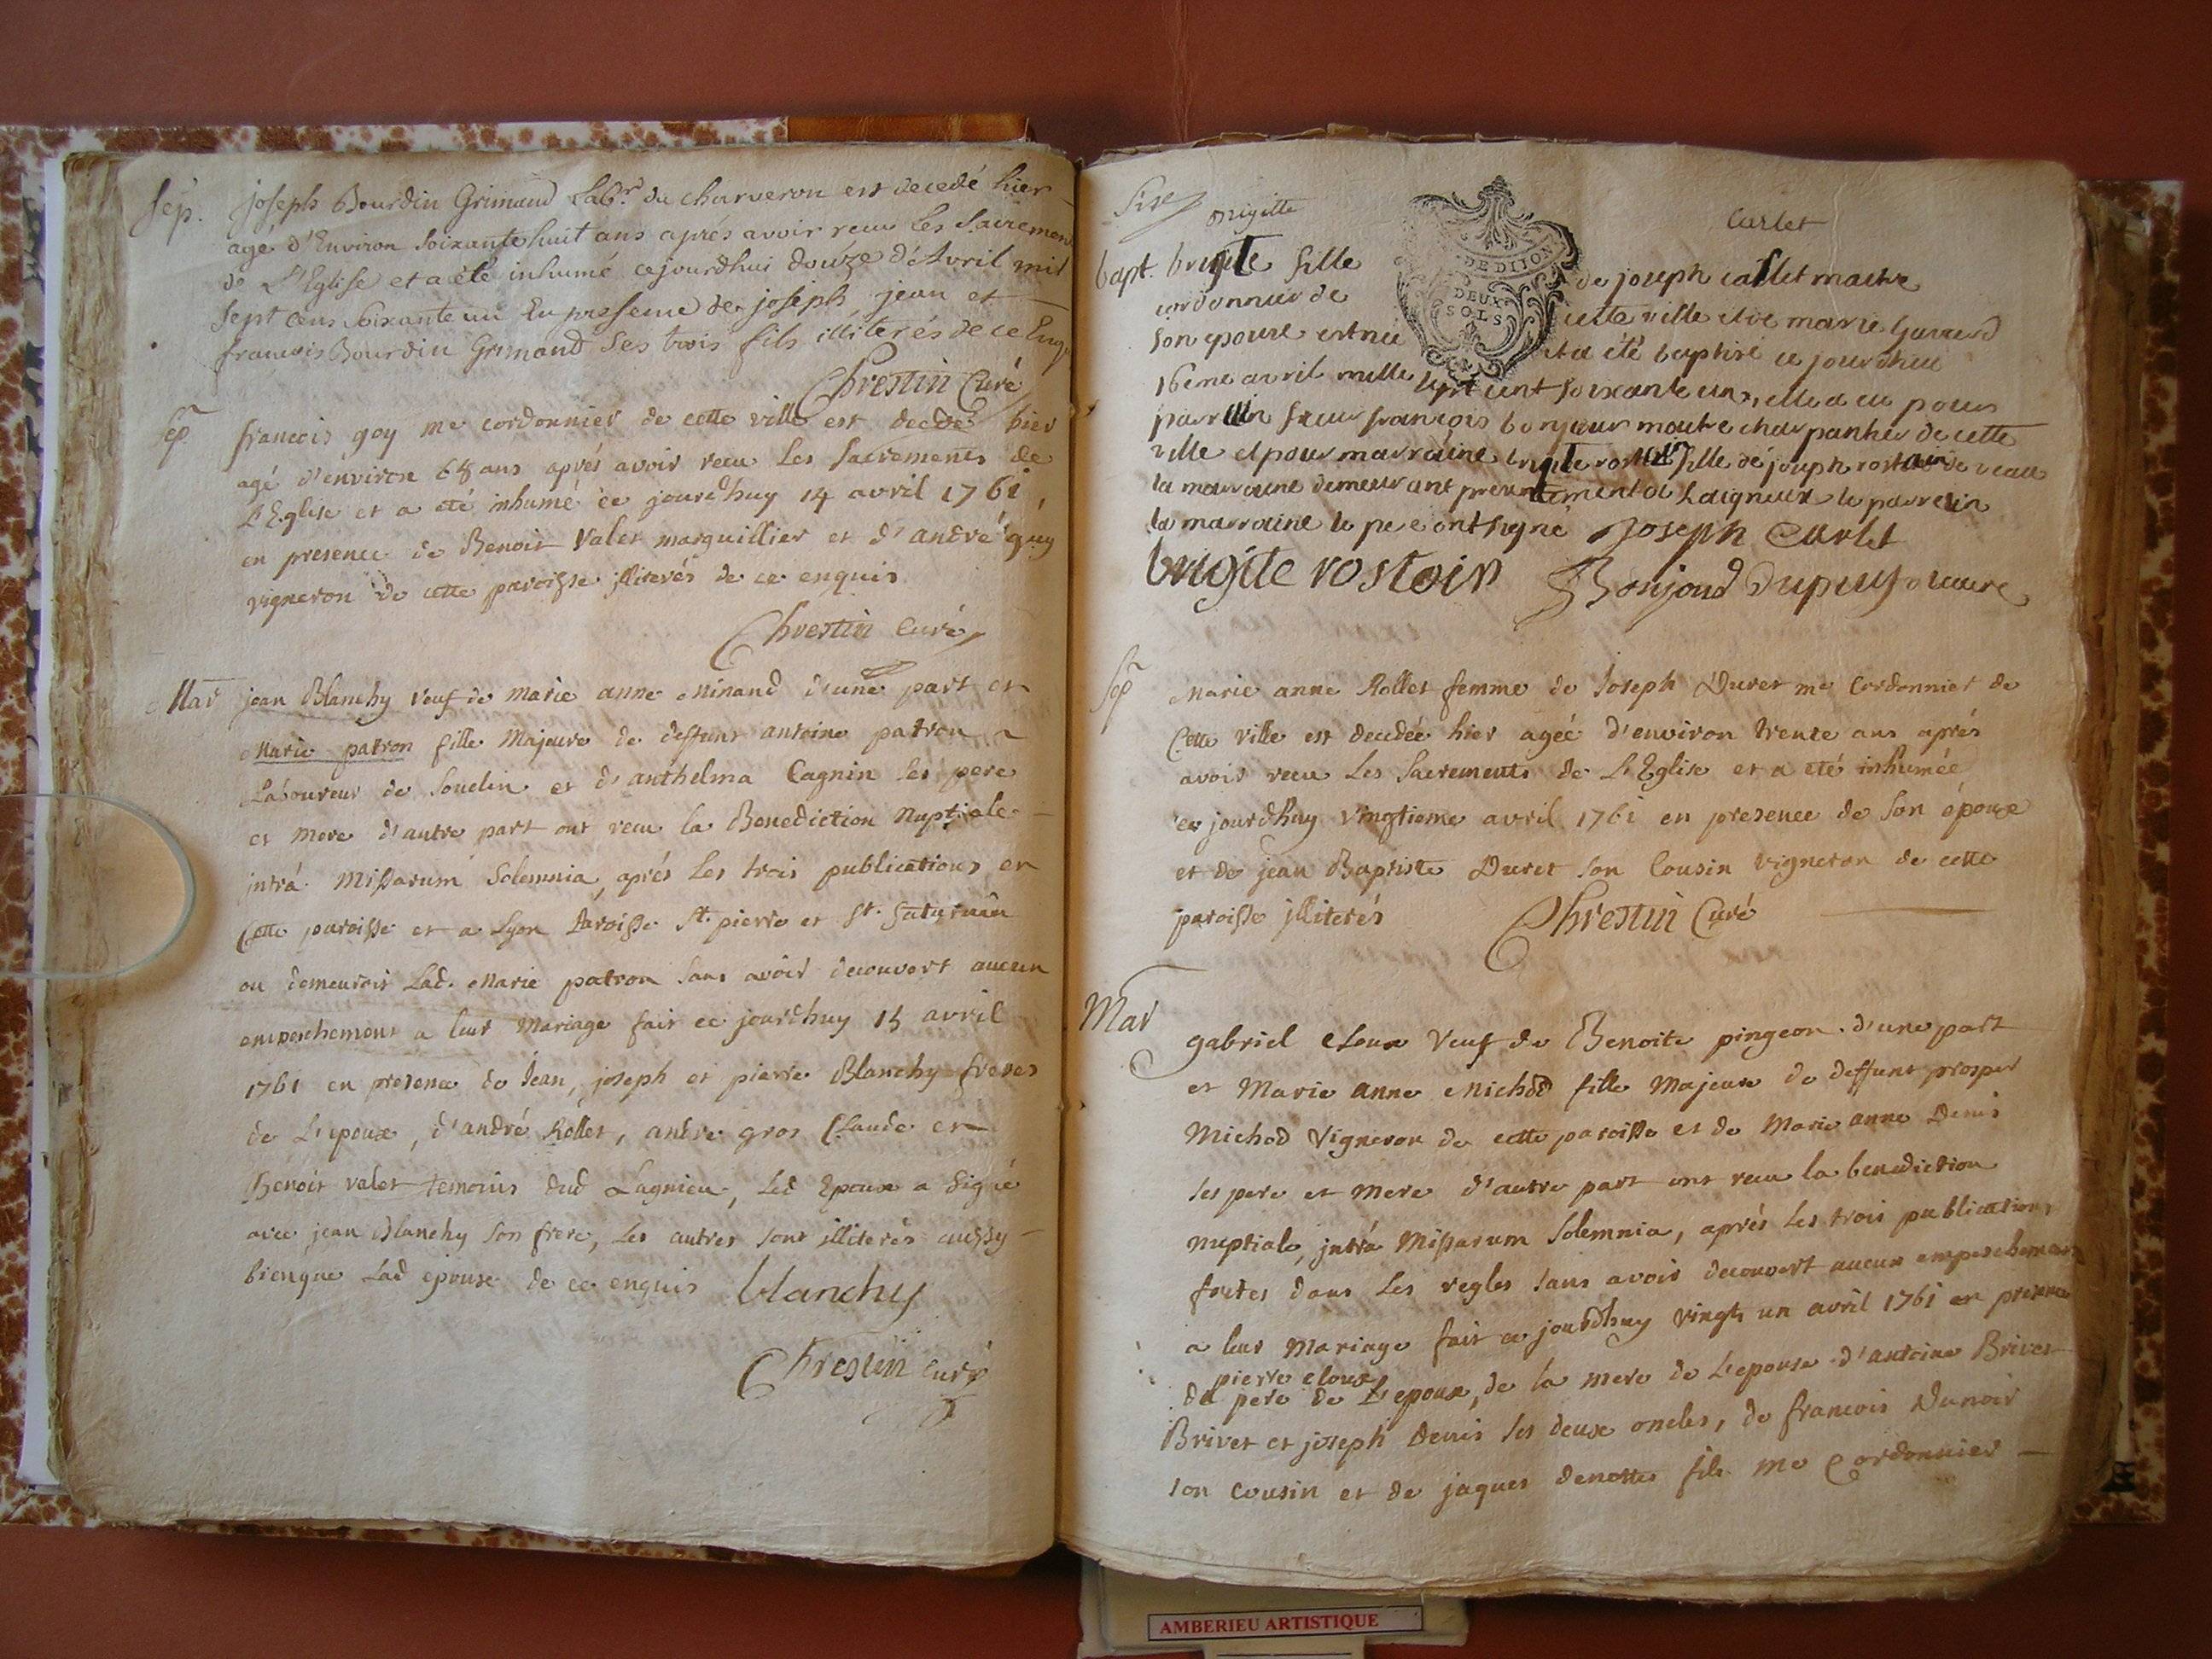 sep. joseph Bourdin Grimaud Labr. du charveron est decedé hier
agé d'Environ soixante huit ans aprés avoir recu les Sacremen
de L'Eglise et a été inhumé cejourdhui douze d'Avril mil
Sept cens soixante un En presence de joseph, jean et
francois Bourdin Grimaud Ses trois fils illiterés de ce Enq
Chrestin Curé
sep francois goy me cordonnier de cette ville est decedé hier
agé d'environ 68 ans aprés avoir recu Les Sacrements de
L'Eglise et a eté inhumé ce jourdhuy 14 avril 1761,
en presence de Benoit Valet marguillier et d'andré guy
vigneron de cette paroisse illiterés de ce enquis
Chrestin curé
Mar jean Blanchy veuf de marie anne Minand d'une part et
Marie patron fille Majeure de deffunt antoine patron
Laboureur de Soudin et d'anthelma Cagnin ses pere
et mere d'autre part ont recu la Benediction Nuptiale
intrá Missarum Solemnia, aprés Les trois publications en
Cette paroisse et a Lyon Paroisse St. pierre et St. Saturnin
ou demeuroit Lad. Marie patron sans avoir decouvert aucun
empeschement a leur Mariage fait ce jourdhuy 15 avril
1761 en presence de Jean, joseph et pierre Blanchy freres
de L'epoux, d'andré Rollet, andre gros Claude et
Benoit valet temoins dud Lagnieu, Led Epoux a signé
avec jean Blanchy son frere, Les autres sont illiterés aussy
bienque Lad epouse de ce enquis blanchy
Chrestin curé
Brigitte Carlet
DE DIJON
DEUX
SOLS
bapt. brigite fille de joseph carlet maitre
cordonnier de cette ville et de marie
son epouse est née et a été baptisé ce jourdhui
16eme avril mille sept cent soixante un, elle a eu pour
parrain sieur françois bonjour maitre charpantier de cette
ville et pour marraine brigite rostain fille de joseph rostain de veau
la marraine demeurant presentement a Laigneux le parrein
la marraine le pere ont signé Joseph Carlet
brigite rostoin Bonjour Dupuy vicaire
Sep Marie anne Rollet femme de Joseph Duret me Cordonnier de
Cette ville est decedée hier agée d'environ trente ans aprés
avoir recu Les Sacrements de L'Eglise et a eté inhumée
ce jourdhuy vingtieme avril 1761 en presence de son époux
et de jean Baptiste Duret son Cousin vigneron de cette
paroisse illiterés Chrestin Curé
Mar gabriel Cloux veuf de Benoite pingeon d'une part
et Marie anne Michod fille Majeure de deffunt prosper
Michod Vigneron de cette paroisse et de Marie anne Denis
ses pere et mere d'autre part ont recu la benediction
nuptiale, intrá Missarum Solemnia, aprés Les trois publications
faites dans Les regles sans avoir decouvert aucun empeschement
a leur Mariage fait ce jourdhuy vingt un avril 1761 en presence
pierre cloux
du pere de L'epoux, de la mere de L'epouse d'antoine Brivet
Brivet et joseph Denis ses deux oncles, de francois Dunoir
son cousin et de jaques denotte fils me Cordonnier
AMBERIEU ARTISTIQUE